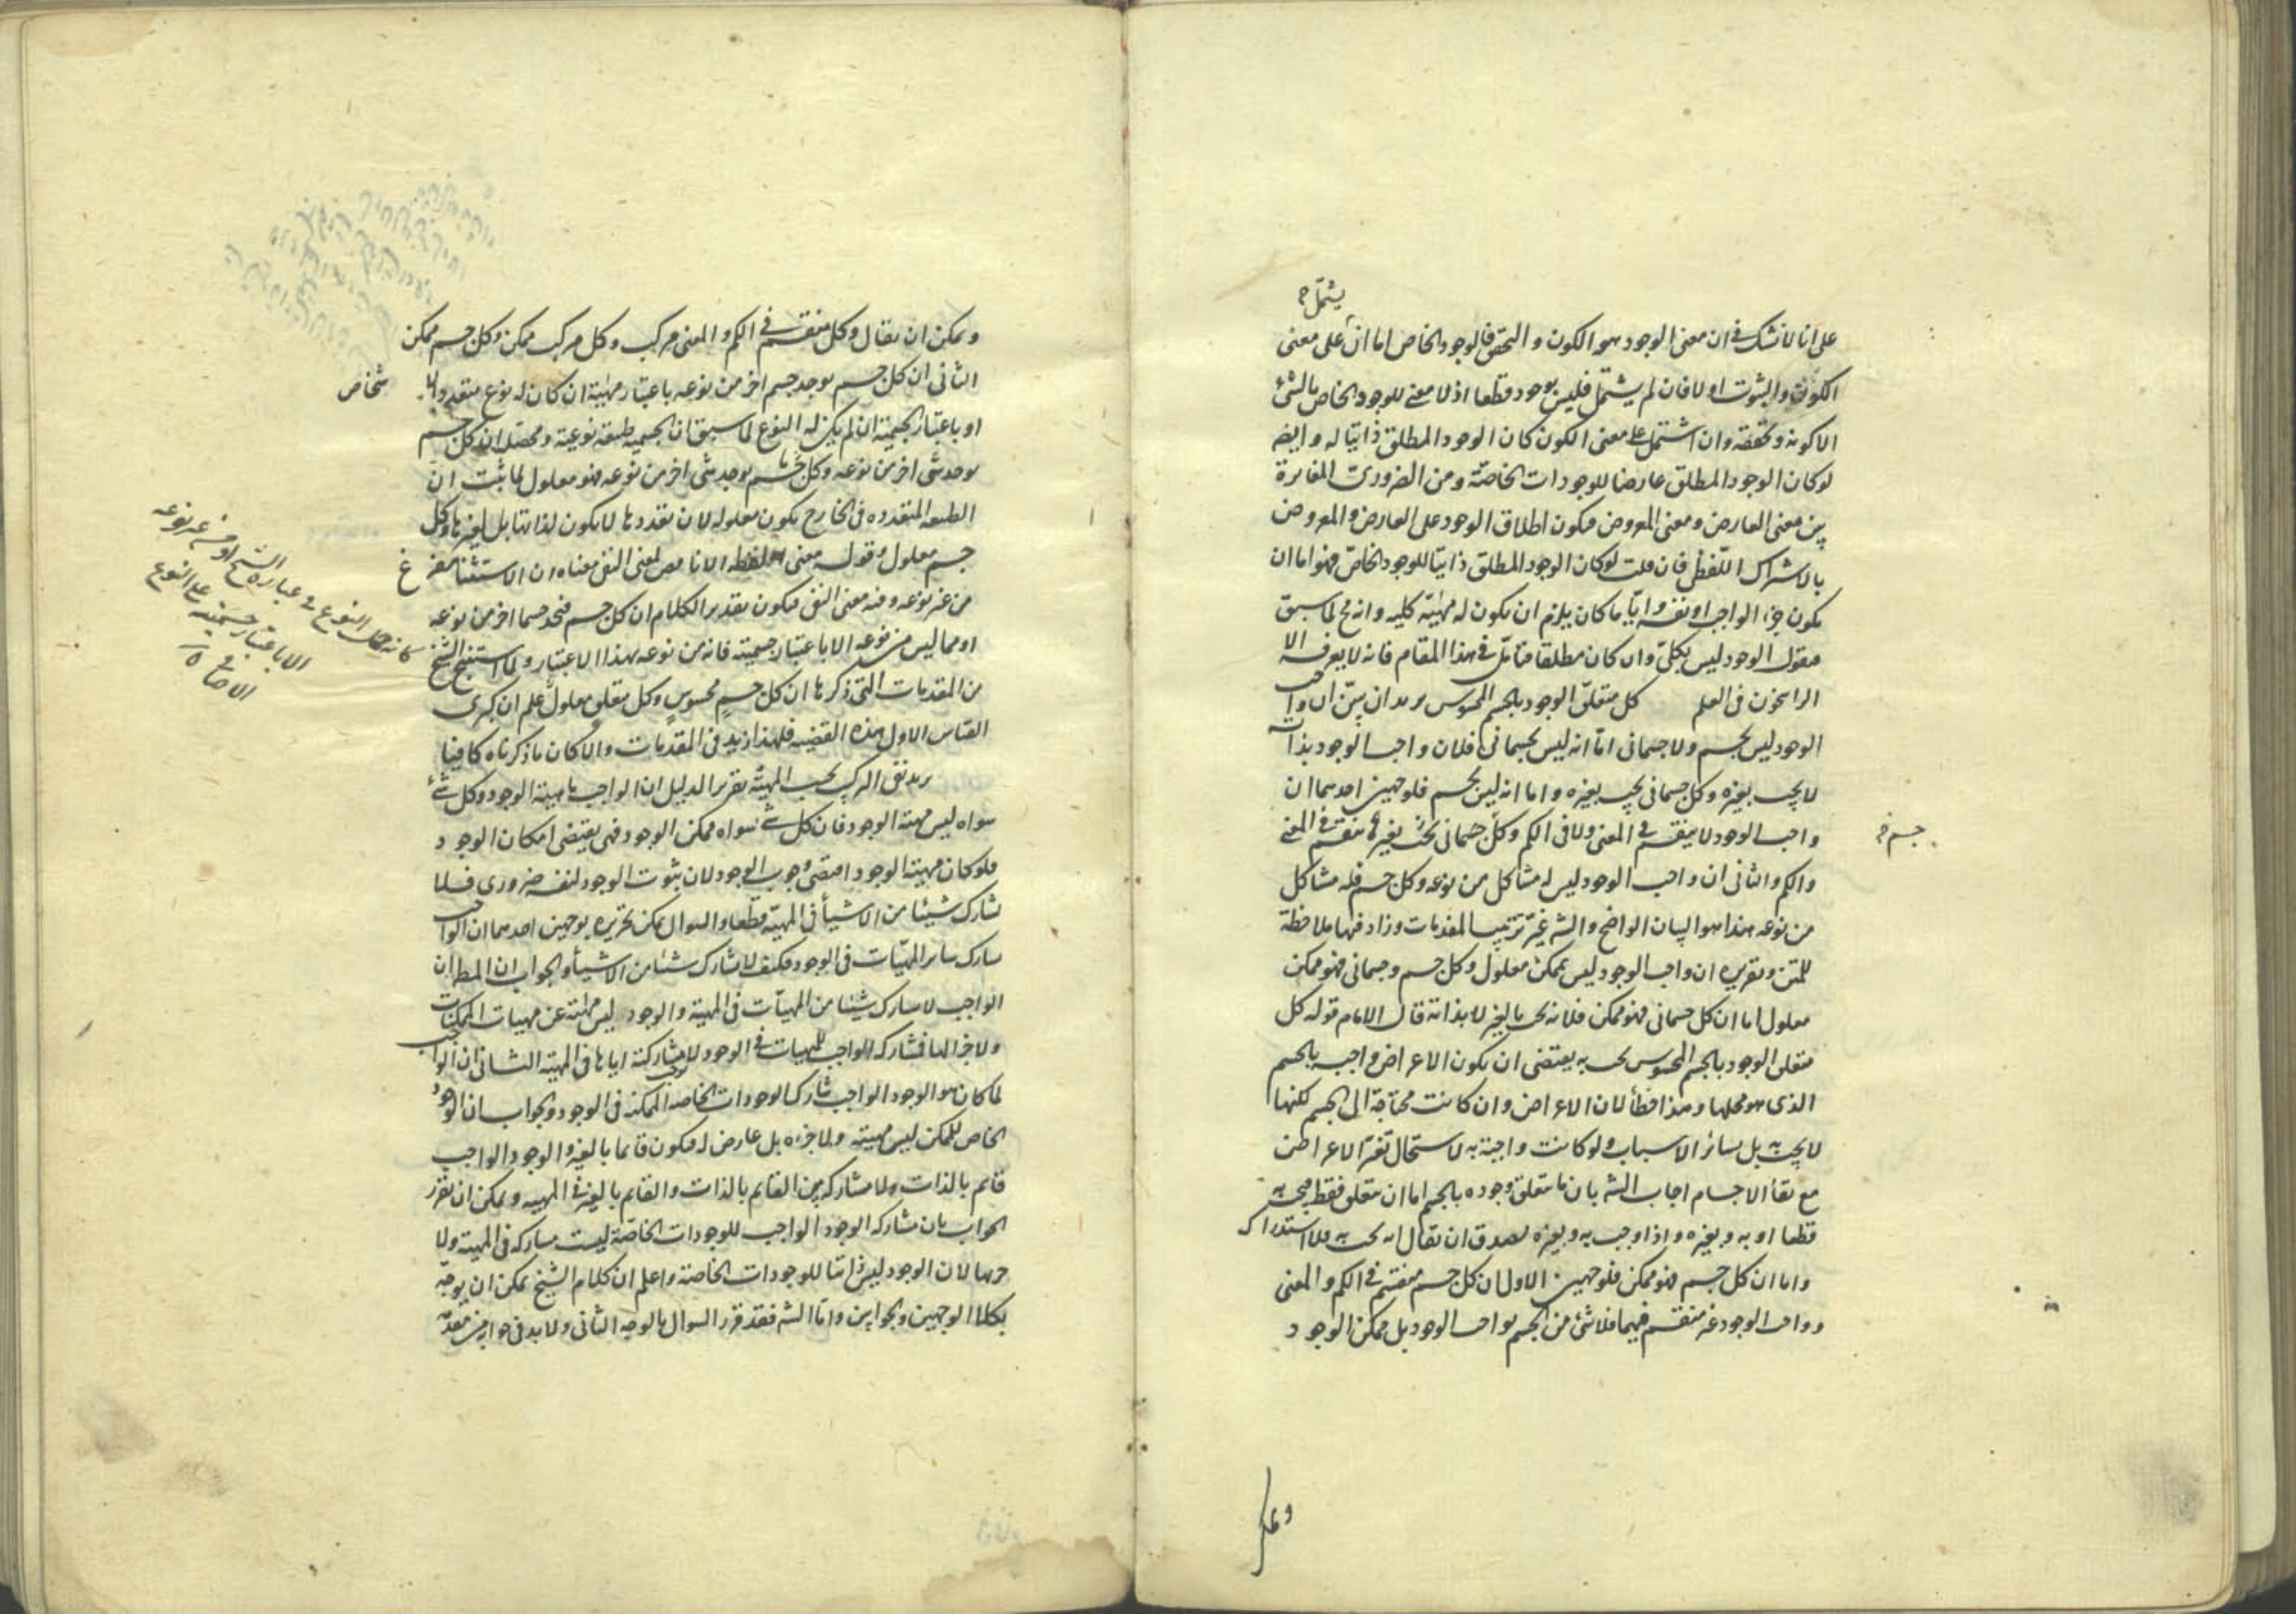 يشتمل
على انا لا نشك في ان معنى الوجود هو الكون و التحقق فالوجود الخاص اما ان على معنى
الكون والثبوت او لا فان لم يشتمل فليس بوجود قطعا اذ لا معنى للوجود الخاص بالشئ
الا كونه وتحققه وان اشتمل على معنى الكون كان الوجود المطلق ذاتيا له و ايضا
لو كان الوجود المطلق عارضا للوجودات الخاصة ومن الضرورى المغايرة
بين معنى العارض ومعنى المعروض فيكون اطلاق الوجود على العارض والمعروض
بالاشتراك اللفظى فان قلت لو كان الوجود المطلق ذاتيا للوجود الخاص فهو اما ان
يكون جزء الواجب او نفسه وايا ما كان يلزم ان يكون له مهية كلية وانه مح لما سبق
فنقول الوجود ليس بكلى وان كان مطلقا فتامل فى هذا المقام فانه لا يعرفه الا
الراسخون فى العلم كل متعلق الوجود بالجسم المحسوس يريد ان يبين ان واجب
الوجود ليس بجسم ولا جسمانى اما انه ليس بجسمانى فلان واجب الوجود بذاته
لا يجب بغيره وكل جسمانى يجب بغيره و اما انه ليس بجسم فلوجهين احدهما ان
واجب الوجود لا ينقسم في المعنى ولا فى الكم وكل جسمانى يجب بغيره منقسم فى المعنى
جسم
والكم والثانى ان واجب الوجود ليس له مشاكل من نوعه وكل جسم فله مشاكل
من نوعه هذا هو البيان الواضح والشه غير ترتيب المقدمات وزاد فيها ملاحظة
للمتن وتقريره ان واجب الوجود ليس بممكن معلول وكل جسم وجسمانى فهو ممكن
معلول اما ان كل جسمانى فهو ممكن فلانه يجب بالغير لا بذاته قال الامام قوله كل
متعلق الوجود بالجسم المحسوس يجب به يقتضى ان يكون الاعراض واجبه بالجسم
الذى هو محلها وهذا خطأ لان الاعراض وان كانت محتاجة الى الجسم لكنها
لا يجب به بل بسائر الاسباب ولو كانت واجبة به لاستحال تغير الاعراض
مع بقاء الاجسام اجاب الشه بان ما يتعلق وجوده بالجسم اما ان يتعلق فقط فيجب به
قطعا او به وبغيره واذا وجب به وبغيره يصدق ان يقال انه يجب به فلا استدراك
واما ان كل جسم فهو ممكن فلوجهين الاول ان كل جسم منقسم فى الكم والمعنى
وواجب الوجود غير منقسم فيهما فلا شئ من الجسم بواجب الوجود بل ممكن الوجود
ويمكن ان يقال وكل منقسم فى الكم و المعنى مركب وكل مركب ممكن وكل جسم ممكن
الثانى ان كل جسم يوجد جسم اخر من نوعه باعتبار مهيته ان كان له نوع متعدد الا شخاص
او باعتبار الجسمية ان لم يكن له النوع لما سبق ان الجسمية طبيعة نوعية ومحصله ان كل جسم
يوجد شئ اخر من نوعه وكل جسم يوجد شئ اخر من نوعه فهو معلول لما ثبت ان
الطبيعه المتعدده فى الخارج يكون معلوله لان تعددها لا يكون لذاتها بل لغيرها وكل
جسم معلول وقوله معنى لفظه الا نا معنى النفى معناه ان الاستثناء مفرغ
من غير نوعه وفيه معنى النفى فيكون تقدير الكلام ان كل جسم فتجد جسما اخر من نوعه
او مما ليس من نوعه الا باعتبار جسميته فانه من نوعه بهذا الاعتبار ولما استنتج الشيخ
من المقدمات التى ذكرها ان كل جسم محسوس وكل متعلق معلول علم ان كبرى
القياس الاول هذه القضيه فلهذا زيد فى المقدمات والا كان ما ذكرناه كافيا
يريد نفى التركيب بحسب المهيه تقرير الدليل ان الواجب ماهيته الوجود وكل شئ
سواه ليس مهيته الوجود فان كل شئ سواه ممكن الوجود فهى يقتضى امكان الوجود
فلو كان مهيته الوجود اقتضى وجوب الوجود لان ثبوت الوجود لنفسه ضرورى فلا
يشارك شيئا من الاشياء فى المهية قطعا والسوال يمكن تحريره بوجهين احدهما ان الواجب
يشارك ساير المهيات فى الوجود فكيف لا يشارك شيئا من الاشياء والجواب ان المط ان
الواجب لا يشارك شيئا من المهيات فى المهية والوجود ليس مهيته عن مهيات الممكنات
ولا جزأ لها فمشاركه الواجب للمهيات فى الوجود لا يوجب مشاركته اياها فى المهية الثانى ان الواجب
لما كان هو الوجود الواجب شارك الوجودات الخاصه الممكنه فى الوجود والجواب ان الوجود
الخاص للممكن ليس مهيته ولا جزءه بل عارض له فيكون قائما بالغير والوجود الواجب
قائم بالذات ولا مشاركه بين القايم بالذات والقايم بالغير فى المهيه ويمكن ان يقرر
الجواب بان مشاركه الوجود الواجب للوجودات الخاصة ليست مشاركه فى المهية ولا
جزءها لان الوجود ليس ذاتيا للوجودات الخاصة واعلم ان كلام الشيخ يمكن ان يوجه
بكلا الوجهين والجوابين واما الشه فقد قرر السوال بالوجه الثانى ولا بد فى جوابه من مقدمة
كانه حمل النوع فى عبارة الشيخ او من غير نوعه
الا باعتبار جسميته على النوع
الاضافى